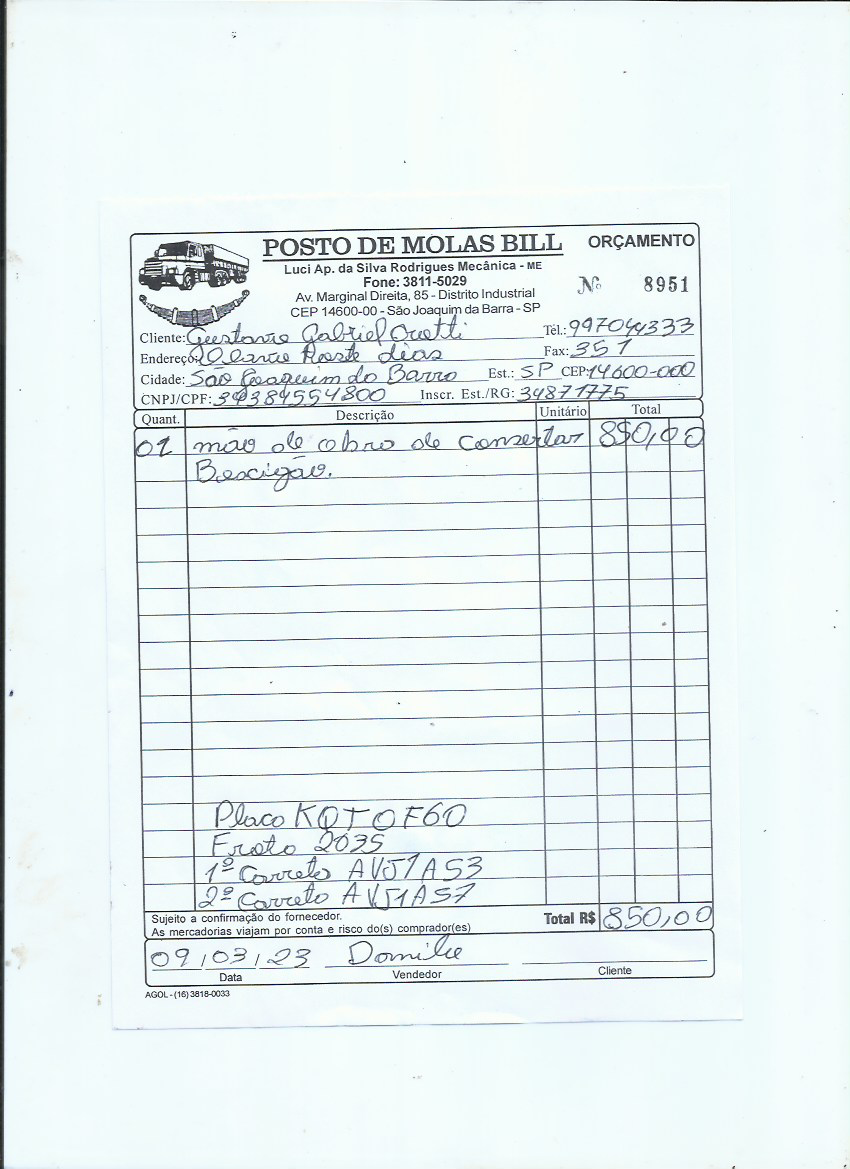 POSTO DE MOLAS BILL
ORÇAMENTO
Luci Ap. da Silva Rodrigues Mecânica - ME
Fone: 3811-5029
Av. Marginal Direita, 85 - Distrito Industrial
CEP 14600-00 - São Joaquim da Barra - SP
Nº 8951
Cliente: Gustavo Gabriel Tel.: 997044333
Endereço: dias Fax: 351
Cidade: São Joaquim do Barro Est.: SP CEP: 14600-000
CNPJ/CPF: 39384554800 Inscr. Est./RG: 34871775
Quant. Descrição Unitário Total
01 mão de obro de consertar 850,00
Placo KQT0F60
Froto 2035
1º Carreto AVJ1A53
2º Carreto AVJ1A57
Sujeito a confirmação do fornecedor.
As mercadorias viajam por conta e risco do(s) comprador(es)
Total R$ 850,00
09/03/23
Data Vendedor Cliente
AGOL - (16) 3818-0033